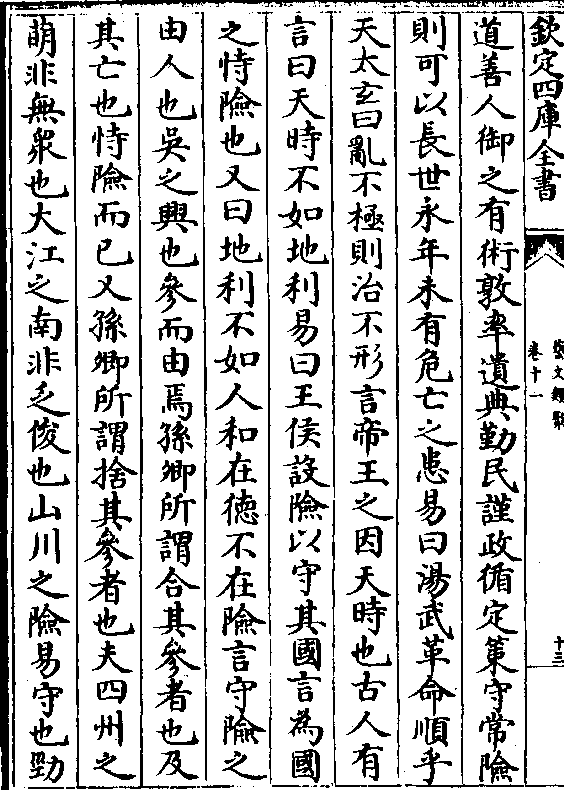 欽定四庫全書
藝文類聚
卷十一
十三
道善人御之有術敦率遺典勤民謹政循定策守常險
則可以長世永年未有危亡之患易曰湯武革命順乎
天太玄曰亂不極則治不形言帝王之因天時也古人有
言曰天時不如地利易曰王侯設險以守其國言為國
之恃險也又曰地利不如人和在德不在險言守險之
由人也吳之興也參而由焉孫卿所謂合其參者也及
其亡也恃險而已又孫卿所謂捨其參者也夫四州之
萌非無衆也大江之南非乏俊也山川之險易守也勁